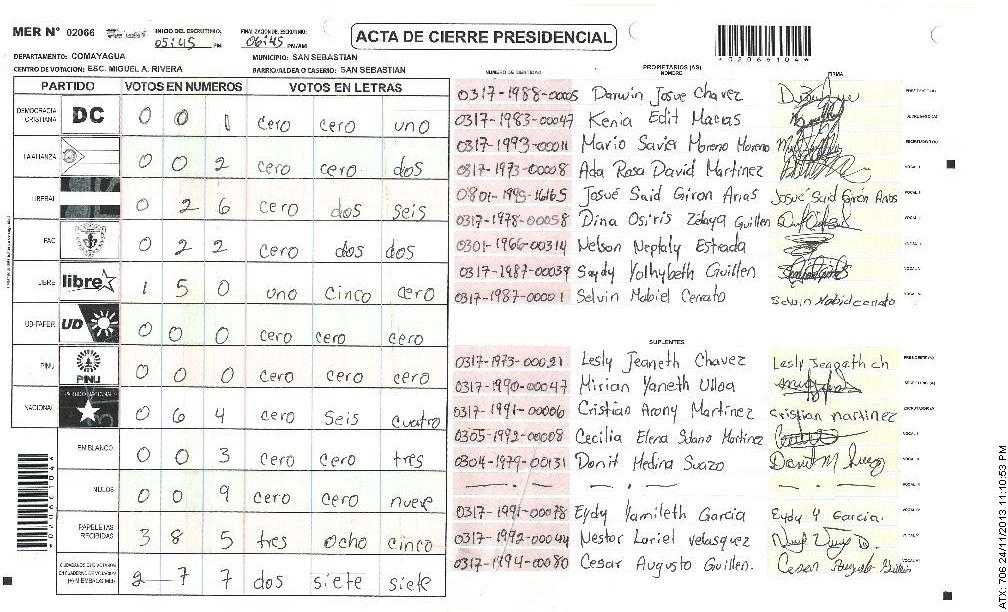 MER N° 02066
INICIO DEL ESCRUTINIO: 05:45 PM
FINALIZACION DE ESCRUTINIO: 06:45 PM/AM
ACTA DE CIERRE PRESIDENCIAL
*02066104*
DEPARTAMENTO: COMAYAGUA
MUNICIPIO: SAN SEBASTIAN
CENTRO DE VOTACION: ESC. MIGUEL A. RIVERA
BARRIO/ALDEA O CASERIO: SAN SEBASTIAN
PARTIDO VOTOS EN NUMEROS VOTOS EN LETRAS
DEMOCRACIA CRISTIANA DC 0 0 1 cero cero uno
LA ALIANZA 0 0 2 cero cero dos
LIBERAL 0 2 6 cero dos seis
PAC 0 2 2 cero dos dos
LIBRE libre 1 5 0 uno cinco cero
UD-FAPER UD 0 0 0 cero cero cero
PINU PINU 0 0 0 cero cero cero
NACIONAL 0 6 4 cero seis cuatro
EN BLANCO 0 0 3 cero cero tres
NULOS 0 0 9 cero cero nueve
PAPELETAS RECIBIDAS 3 8 5 tres ocho cinco
2 7 7 dos siete siete
*02066104*
PROPIETARIOS (AS)
NUMERO DE IDENTIDAD NOMBRE FIRMA
0317-1988-00005 Darwin Josue Chavez
0317-1983-00047 Kenia Edit Macias
0317-1993-00011 Mario Savier Moreno Moreno
0317-1973-00008 Ada Rosa David Martinez
0801-1995-16165 Josué Said Giron Arias Josué Said Giron Arias
0317-1978-00058 Dina Osiris Zelaya Guillen
0301-1966-00314 Nelson Neptaly Estrada
0317-1987-00039 Saydy Yolhybeth Guillen
0317-1987-00001 Selvin Mabiel Cerrato Selvin Mabiel Cerrato
SUPLENTES
0317-1973-00021 Lesly Jeaneth Chavez
0317-1990-00047 Mirian Yaneth Ulloa
0317-1991-00006 Cristian Arony Martinez Cristian Martinez
0305-1992-00008 Cecilia Elena Solano Martinez
0304-1979-00131 Donit Medina Suazo
0317-1991-00078 Eydy Yamileth Garcia Eydy Y Garcia.
0317-1992-00044 Nestor Lariel Velasquez
0317-1994-00080 Cesar Augusto Guillen. Cesar Augusto Guillen
ATX: 706 24/11/2013 11:10:53 PM